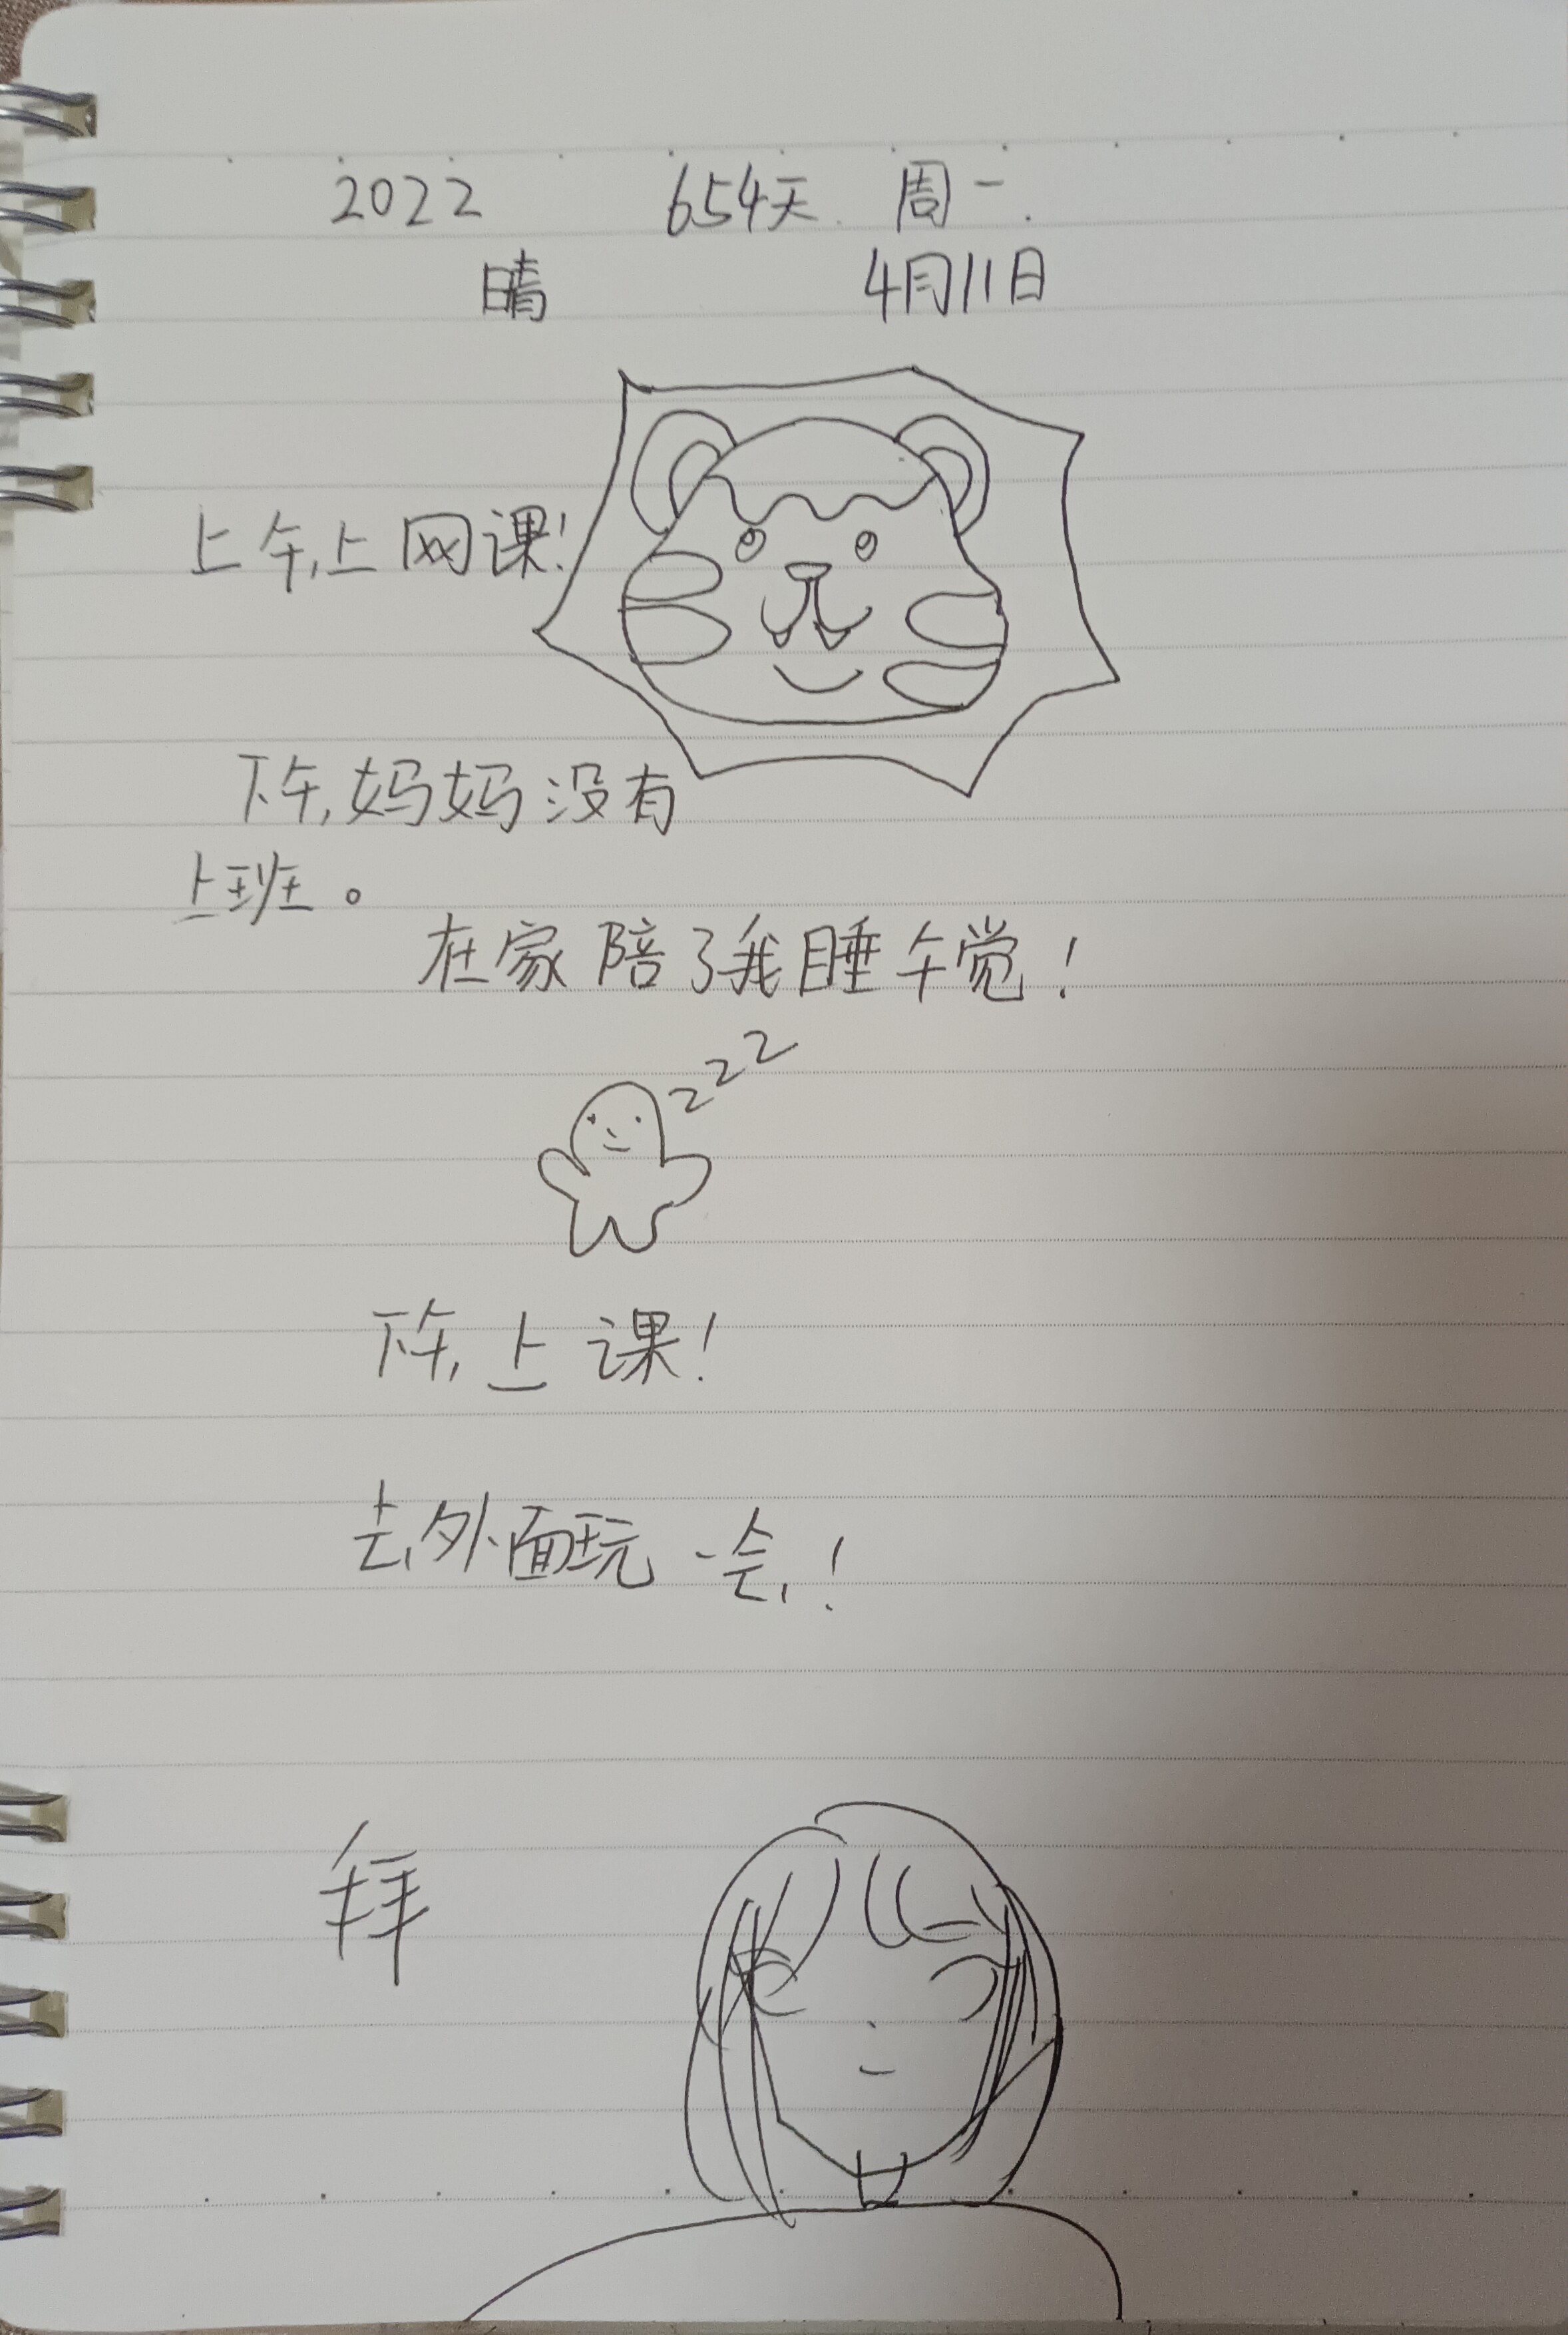 2022 654天. 周一.
晴 4月11日
上午,上网课!
下午,妈妈没有
上班。
在家陪了我睡午觉!
zzz
下午,上课!
去外面玩一会!
拜